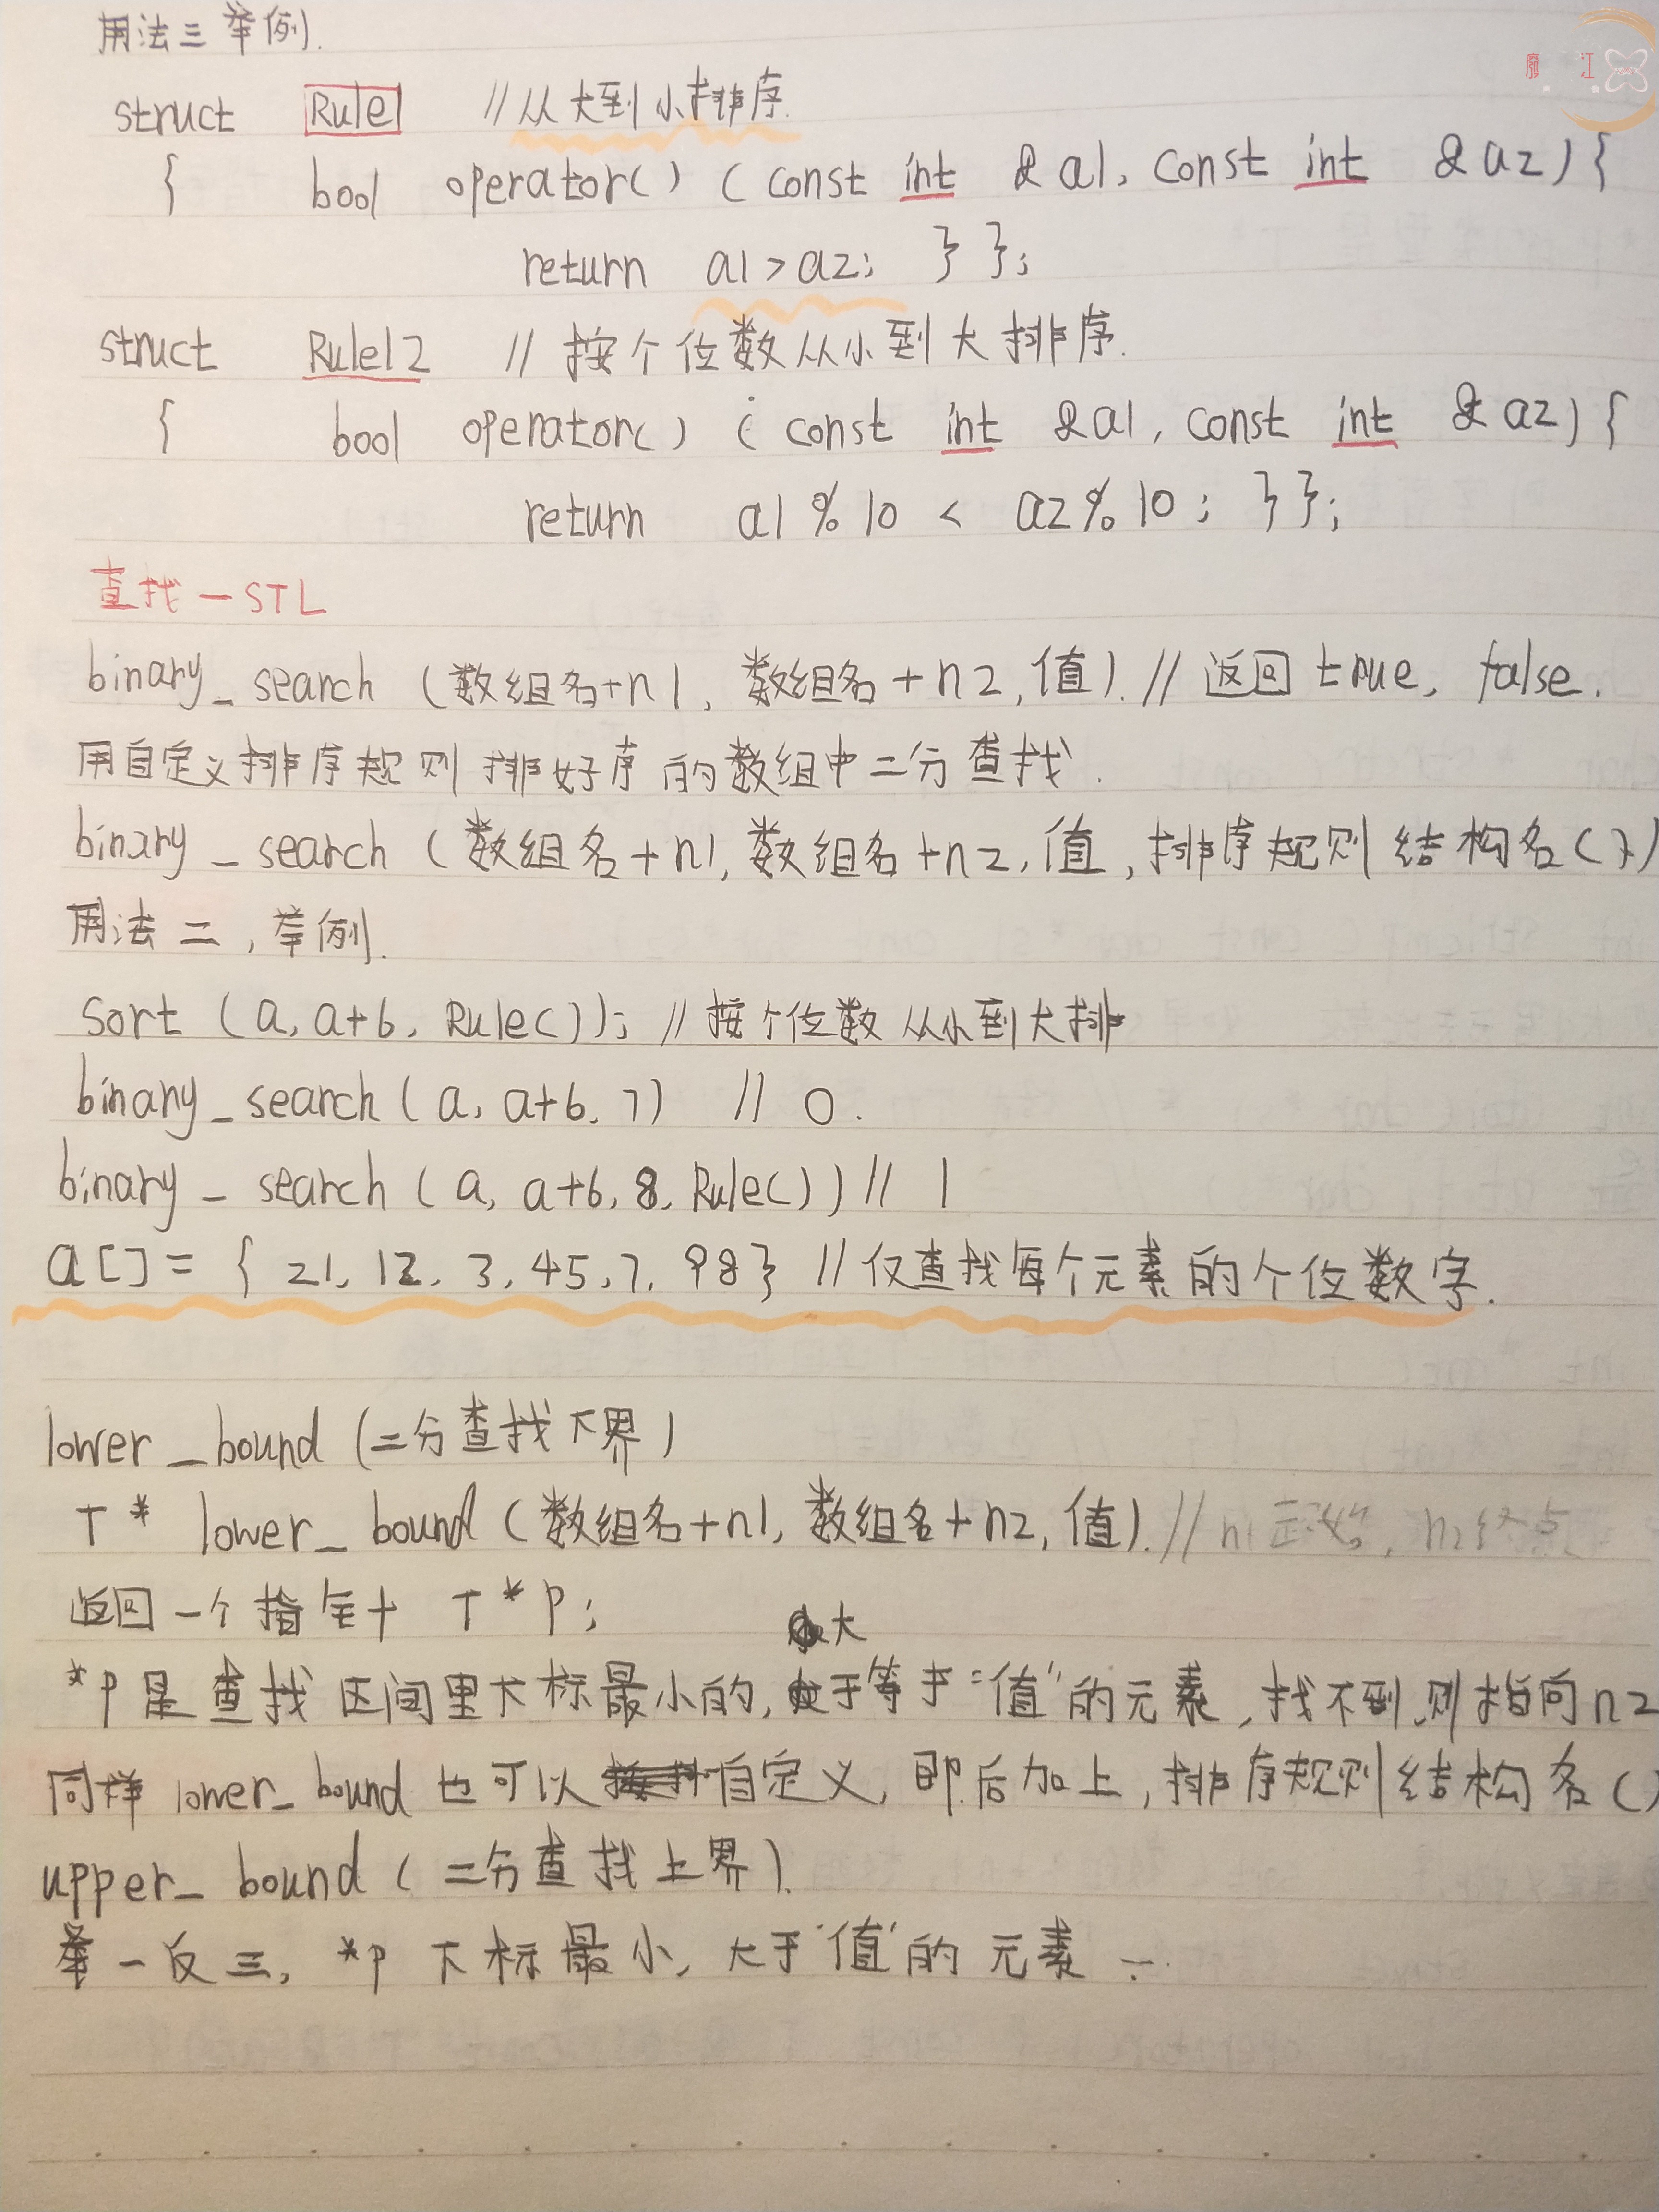 用法三举例.
struct Rule1 //从大到小排序.
{ bool operator() (const int &a1, const int &a2){
return a1>a2; } };
struct Rule12 // 按个位数从小到大排序.
{ bool operator() (const int &a1, const int &a2){
return a1%10 < a2%10; } };
查找—STL
binary_search (数组名+n1, 数组名+n2,值). // 返回 true, false.
用自定义排序规则排好序的数组中二分查找.
binary_search (数组名+n1,数组名+n2,值,排序规则结构名())
用法二,举例.
sort (a, a+6, Rule()); //按个位数从小到大排
binary_search (a, a+6, 7) // 0.
binary_search (a, a+6, 8, Rule()) // 1
a[] = { 21, 12, 3, 45, 7, 98} //仅查找每个元素的个位数字.
lower_bound (二分查找下界)
T * lower_bound (数组名+n1, 数组名+n2, 值). // n1起始, n2终点
返回一个指针 T * p;
大
*p是查找区间里下标最小的, 于等于"值"的元素,找不到,则指向n2
同样 lower_bound 也可以自定义, 即后加上,排序规则结构名()
upper_bound (二分查找上界).
举一反三, *p 下标最小, 大于"值"的元素
廖 江